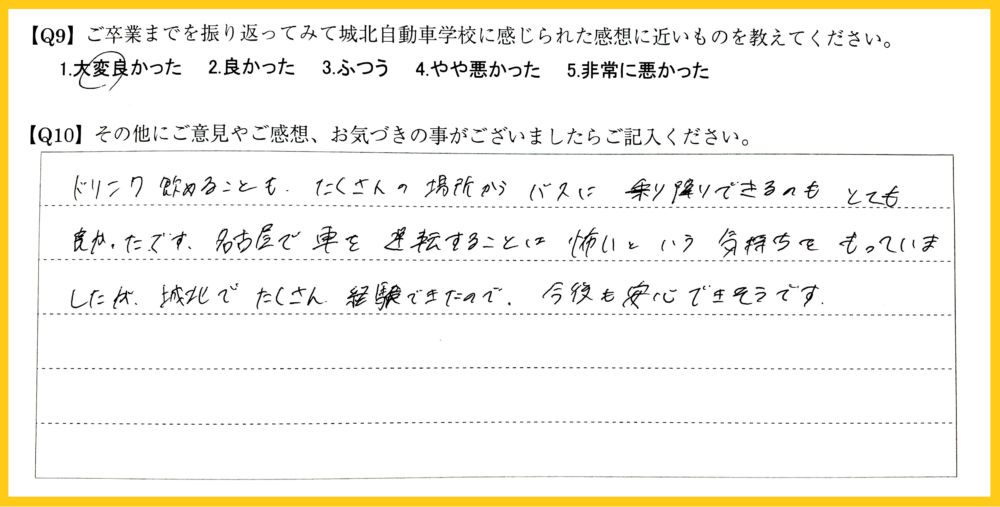 【Q9】ご卒業までを振り返ってみて城北自動車学校に感じられた感想に近いものを教えてください。
1.大変良かった 2.良かった 3.ふつう 4.やや悪かった 5.非常に悪かった
【Q10】その他にご意見やご感想、お気づきの事がございましたらご記入ください。
ドリンク飲めることも、たくさんの場所からバスに乗り降りできるのもとても
良かったです。名古屋で車を運転することは怖いという気持ちをもっていま
したが、城北でたくさん経験できたので、今後も安心できそうです。